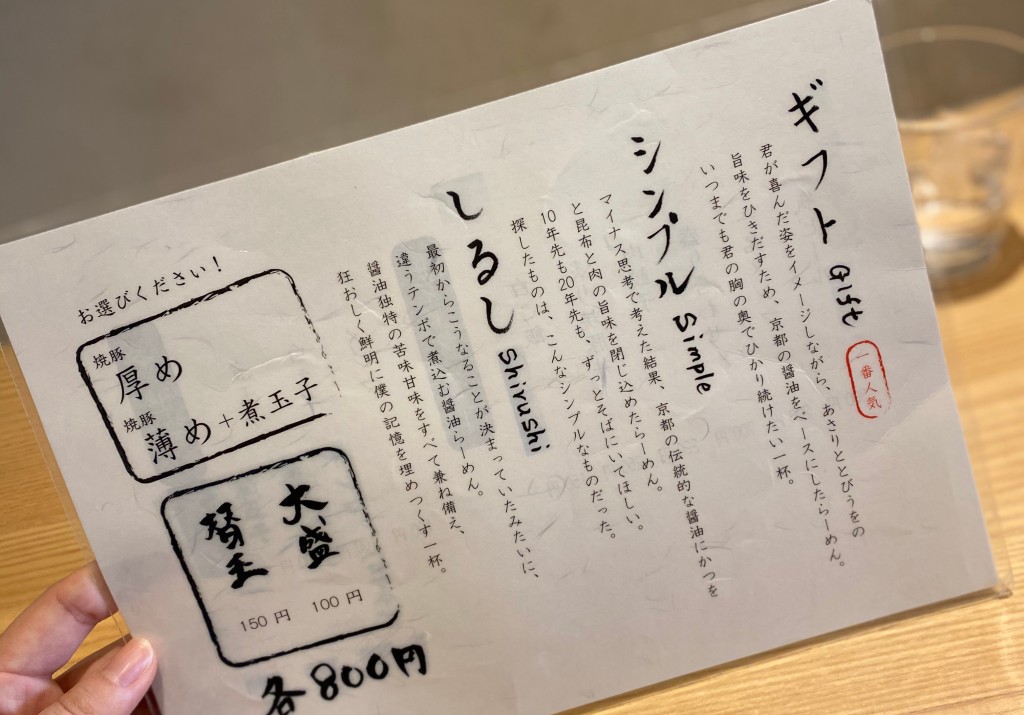 ギフト Gift
一番人気
君が喜んだ姿をイメージしながら、あさりととびうをの
旨味をひきだすため、京都の醤油をベースにしたらーめん。
いつまでも君の胸の奥でひかり続けたい一杯。
シンプル Simple
マイナス思考で考えた結果、京都の伝統的な醤油にかつを
と昆布と肉の旨味を閉じ込めたらーめん。
10年先も20年先も、ずっとそばにいてほしい。
探したものは、こんなシンプルなものだった。
しるし Shirushi
最初からこうなることが決まっていたみたいに、
違うテンポで煮込む醤油らーめん。
醤油独特の苦味甘味をすべて兼ね備え、
狂おしく鮮明に僕の記憶を埋めつくす一杯。
お選びください！
焼豚 厚め
焼豚 薄め＋煮玉子
大盛 100円
替玉 150円
各800円